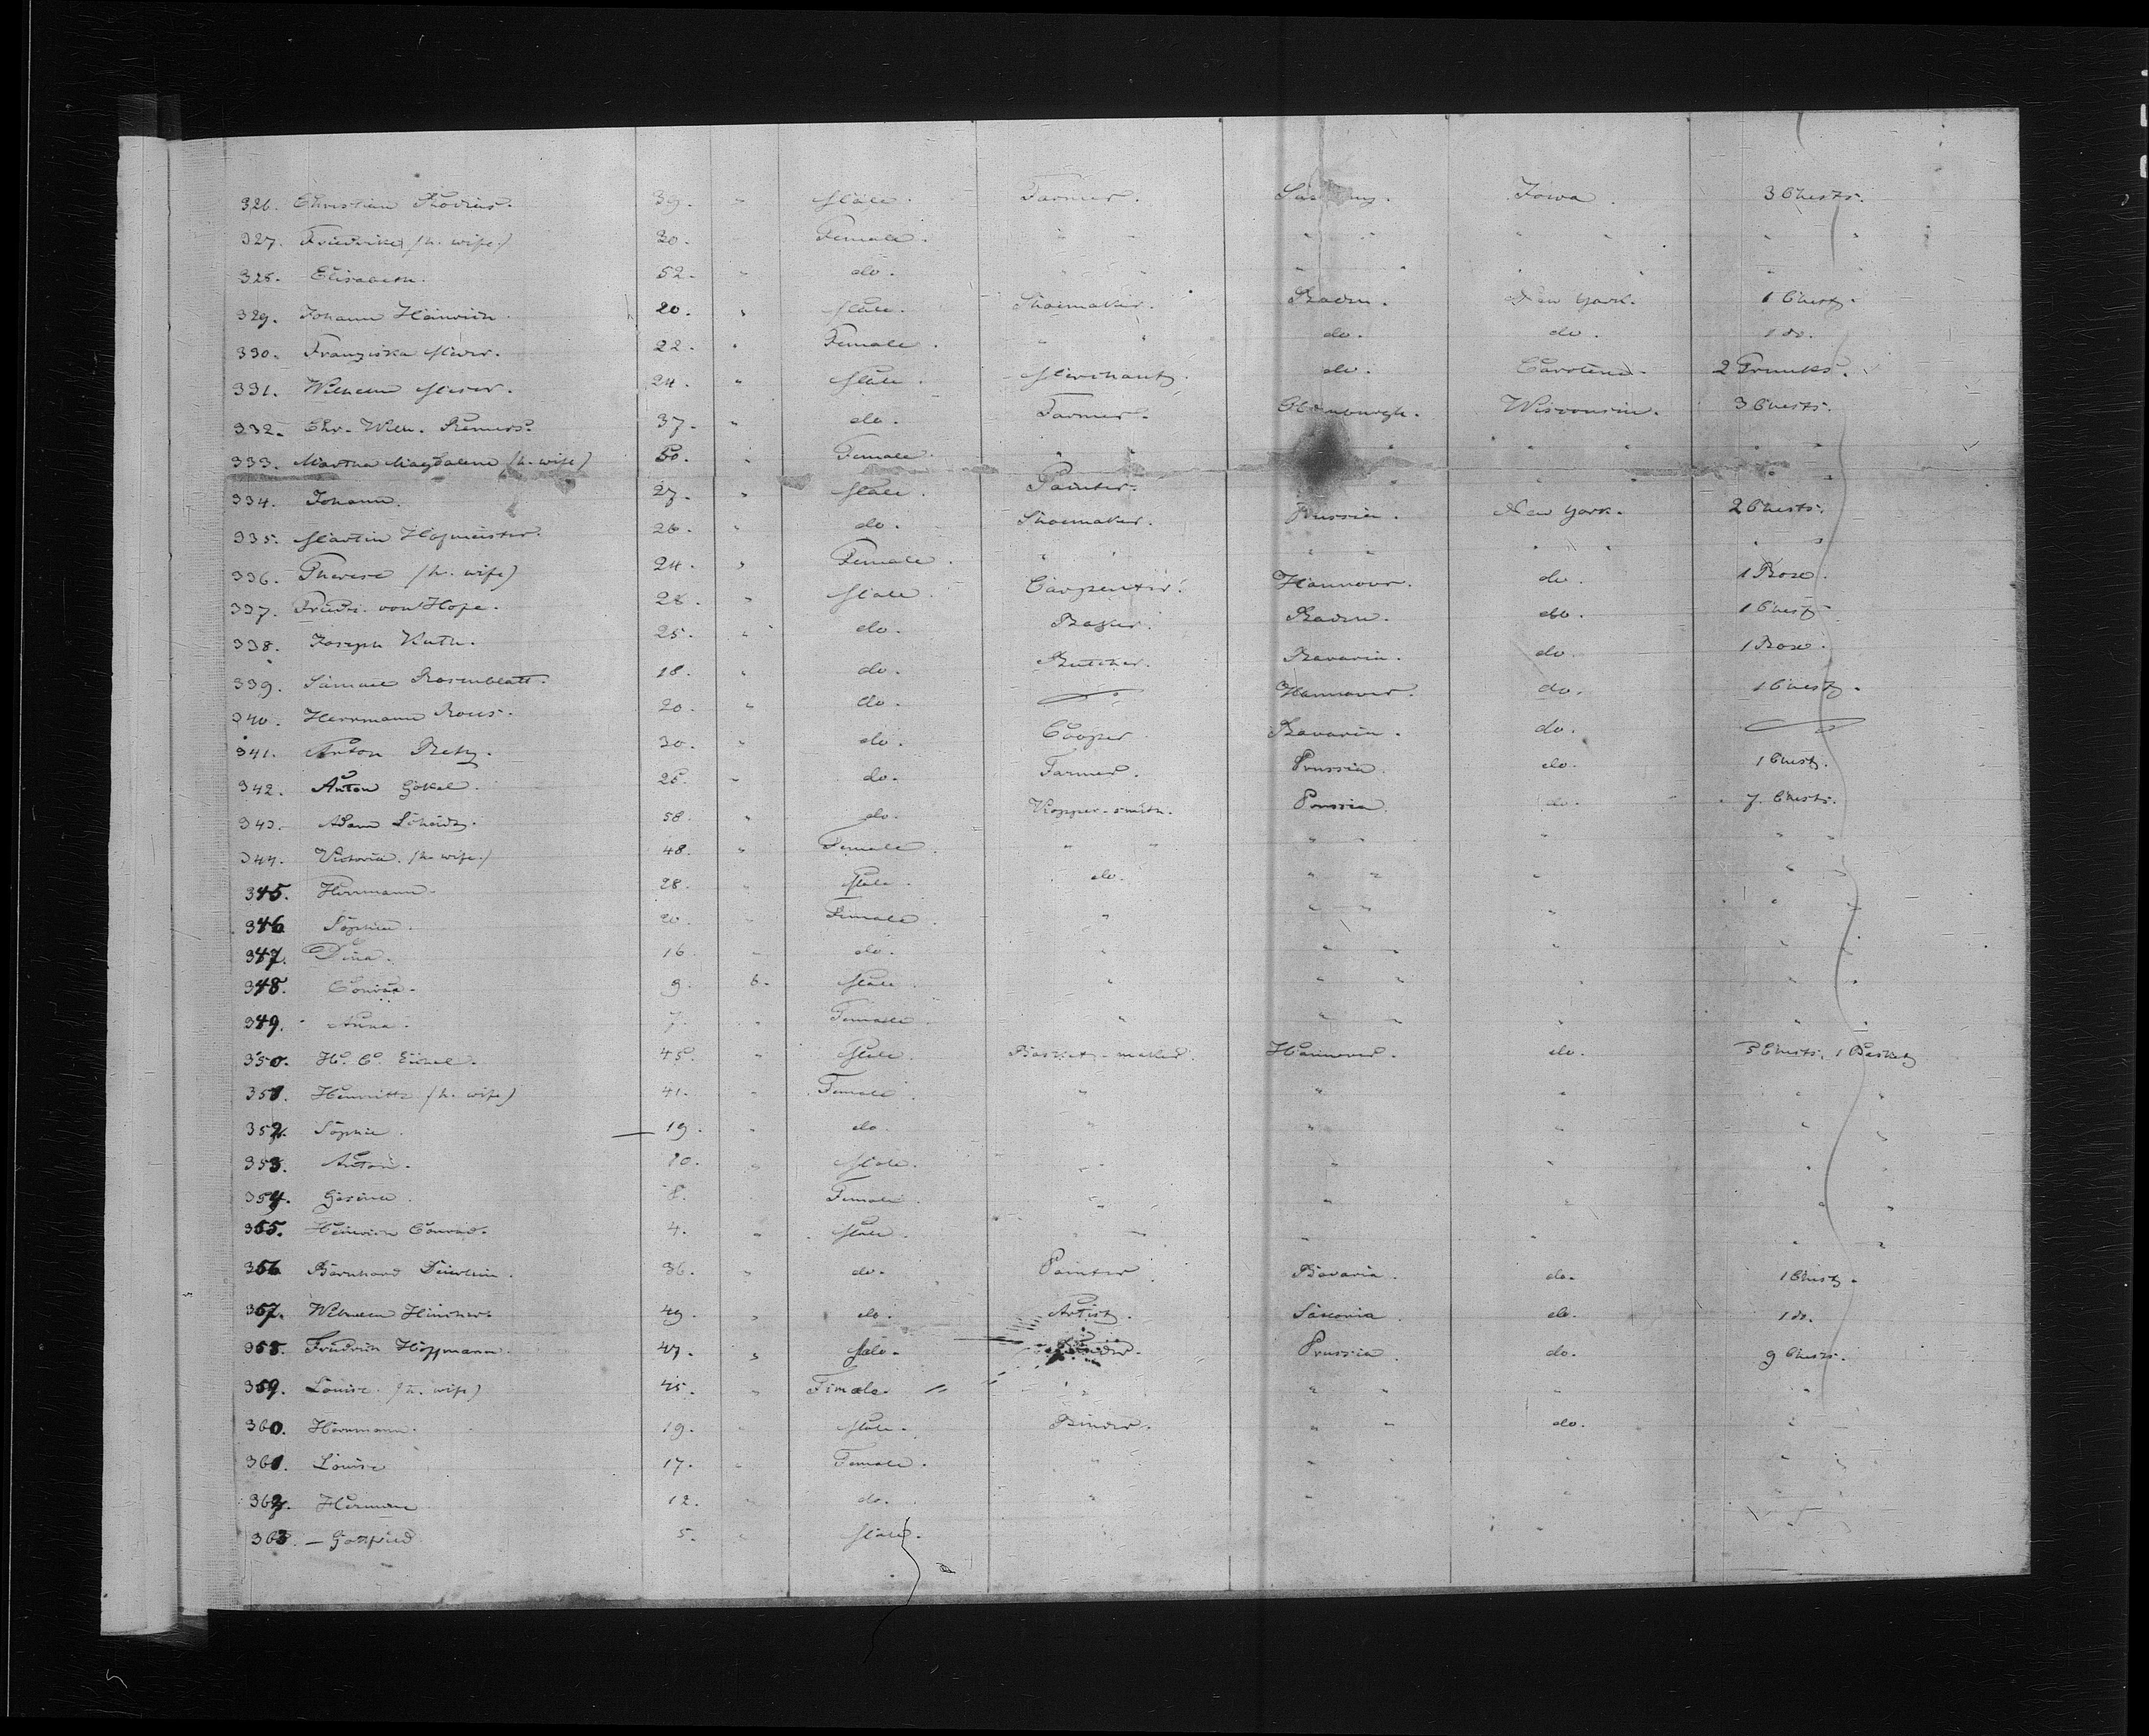 326. Christian 39. " Male. Farmer. Iowa. 3 Chests.
327. Friedrike (h. wife.) 30. Female. " " " " " " " "
328. Elisabeth. 52. " do. " " " " " " " "
329. Johann Heinrich. 20. " Male. Shoemaker. Baden. New York. 1 Chest.
330. Franziska Meier. 22. " Female. " " do. do. 1 do.
331. Wilhelm Meier. 24. " Male. Merchant. do. Carolina. 2 Trunks.
332. Chr. Wilh. Remers. 37. " do. Farmer. Oldenburgh. Wisconsin. 3 Chests.
333. Martha Magdalene (h. wife) 50. " Female. " " " " " " "
334. Johann. 27. " Male. Painter. " " " " "
335. Martin Hofmeister. 26. " do. Shoemaker. Prussia. New York. 2 Chests.
336. Therese (h. wife) 24. " Female. " " " " " " " "
337. Friedr. von Hope. 28. " Male. Carpenter. Hannover. do. 1 Box.
338. Joseph Kuth. 25. " do. Baker. Baden. do. 1 Chest.
339. Samuel Rosenblatt. 18. " do. Butcher. Bavaria. do. 1 Box.
340. Herrmann 20. " do. Hannover. do. 1 Chest.
341. Anton Betz. 30. " do. Cooper Bavaria. do.
342. Anton Gökel. 25. " do. Farmer. Prussia. do. 1 Chest.
343. Adam 58. " do. Kopper-smith. Prussia. do. 7 Chests.
344. Victoria. (h. wife.) 48. " Female. " " " " " " "
345. Herrmann. 28. " Male. do. " " " " "
346 Sophie. 20. " Female. " " " " " "
347. Dina. 16 " do. " " " " " "
348. Conrad. 9. 6. Male. " " " " " "
349. Anna. 7. " Female. " " " " " "
350. H. C. 45. " Male. Basket-maker. Hannover. do. 3 Chests, 1 Basket
351. Henriette (h. wife) 41. " Female. " " " " "
352. Sophie. 19. " do. " " " " "
353. Anton. 10. " Male. " " " " "
354. Gesina. 8. Female. " " " " "
355. Heinrich Conrad. 4. " Male. " " " " " "
356 Bernhard 36. " do. Painter. Bavaria. do. 1 Chest.
357. Wilhelm 49 " do. Artist. Saxonia. do. 1 do.
358. Friedrich Hoffmann. 47. " Male. Prussia. do. 9 Chests.
359. Louise. (h. wife) 45. " Female. " " " " " "
360. Herrmann. 19. " Male. Binder. " " do. "
361. Louise 17. " Female. " " " " " "
362. Hermine 12. " do. " " " " "
363. — Gottfried 5. " Male.